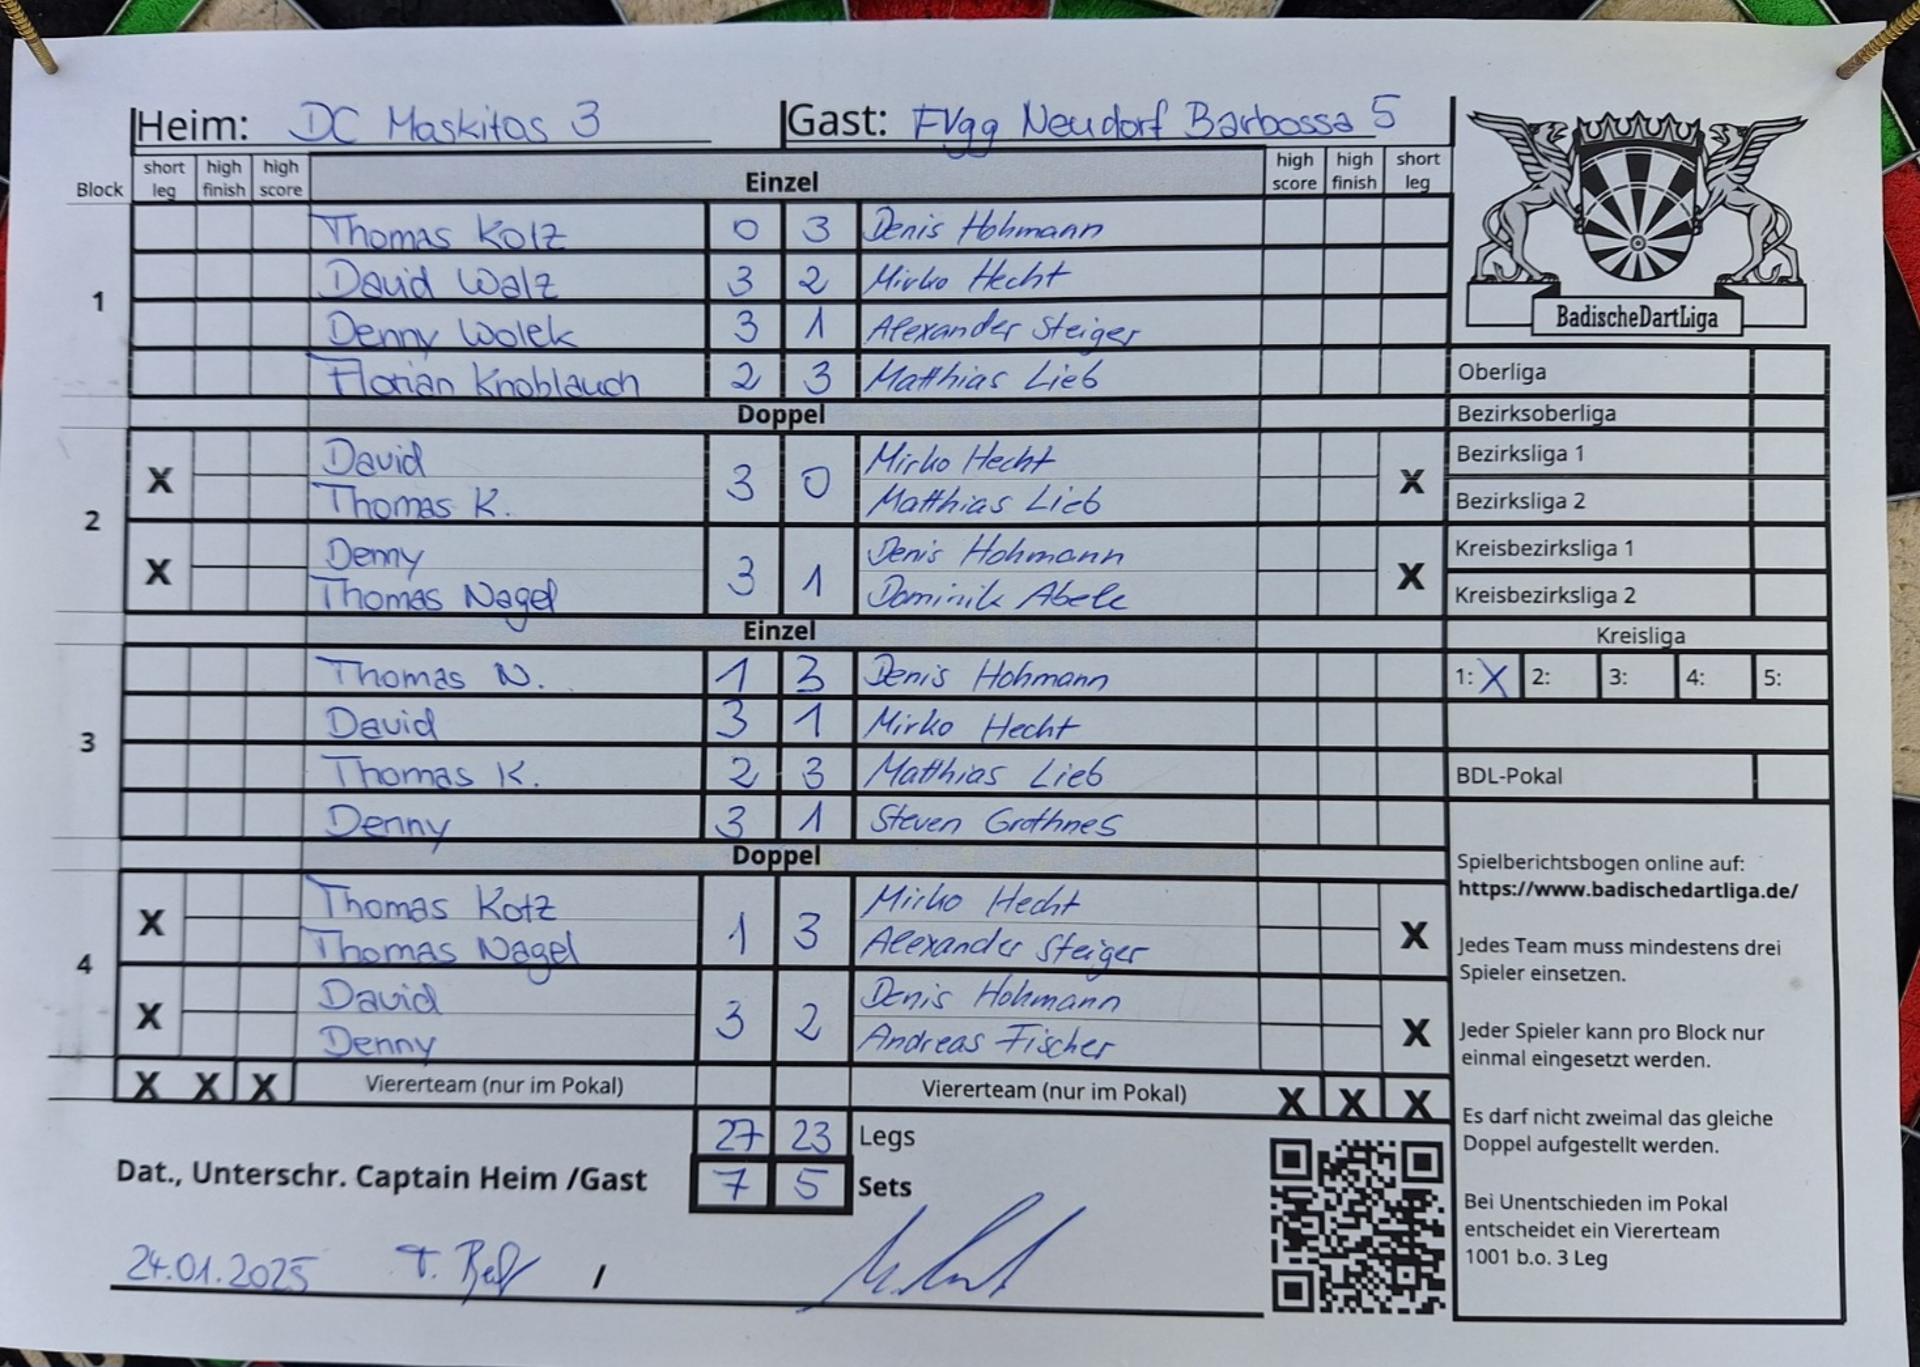 Heim: DC Maskitas 3 Gast: FVgg Neudorf Barbossa 5
Block short leg high finish high score Einzel high score high finish short leg
1
Thomas Kotz 0 3 Denis Hohmann
David Walz 3 2 Mirko Hecht
Denny Wolek 3 1 Alexander Steiger
Florian Knoblauch 2 3 Matthias Lieb
Doppel
2
X David 3 0 Mirko Hecht X
Thomas K. Matthias Lieb
X Denny 3 1 Denis Hohmann X
Thomas Nagel Dominik Abele
Einzel
3
Thomas N. 1 3 Denis Hohmann
David 3 1 Mirko Hecht
Thomas K. 2 3 Matthias Lieb
Denny 3 1 Steven Grothnes
Doppel
4
X Thomas Kotz 1 3 Mirko Hecht X
Thomas Nagel Alexander Steiger
X David 3 2 Denis Hohmann X
Denny Andreas Fischer
X X X Viererteam (nur im Pokal) Viererteam (nur im Pokal) X X X
27 23 Legs
Dat., Unterschr. Captain Heim /Gast 7 5 Sets
24.01.2025 /
BadischeDartLiga
Oberliga
Bezirksoberliga
Bezirksliga 1
Bezirksliga 2
Kreisbezirksliga 1
Kreisbezirksliga 2
Kreisliga
1: X 2: 3: 4: 5:
BDL-Pokal
Spielberichtsbogen online auf:
https://www.badischedartliga.de/
Jedes Team muss mindestens drei
Spieler einsetzen.
Jeder Spieler kann pro Block nur
einmal eingesetzt werden.
Es darf nicht zweimal das gleiche
Doppel aufgestellt werden.
Bei Unentschieden im Pokal
entscheidet ein Viererteam
1001 b.o. 3 Leg